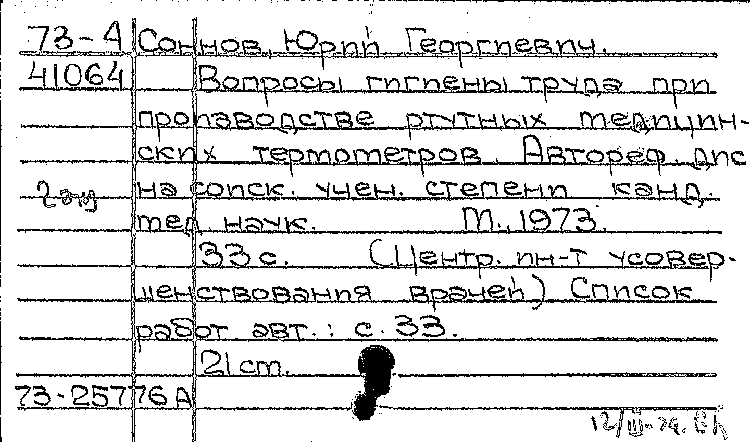 73-А Соннов, Юрий Георгиевич.
41064 Вопросы гигиены труда при
производстве ртутных медицин-
ских термометров. Автореф. дис
2 экз на соиск. учен. степени канд.
мед. наук. М., 1973.
33 с. (Центр. ин-т усовер-
шенствования врачей) Список
работ авт.: с. 33.
21 cm.
73-25776А
12/III-74.